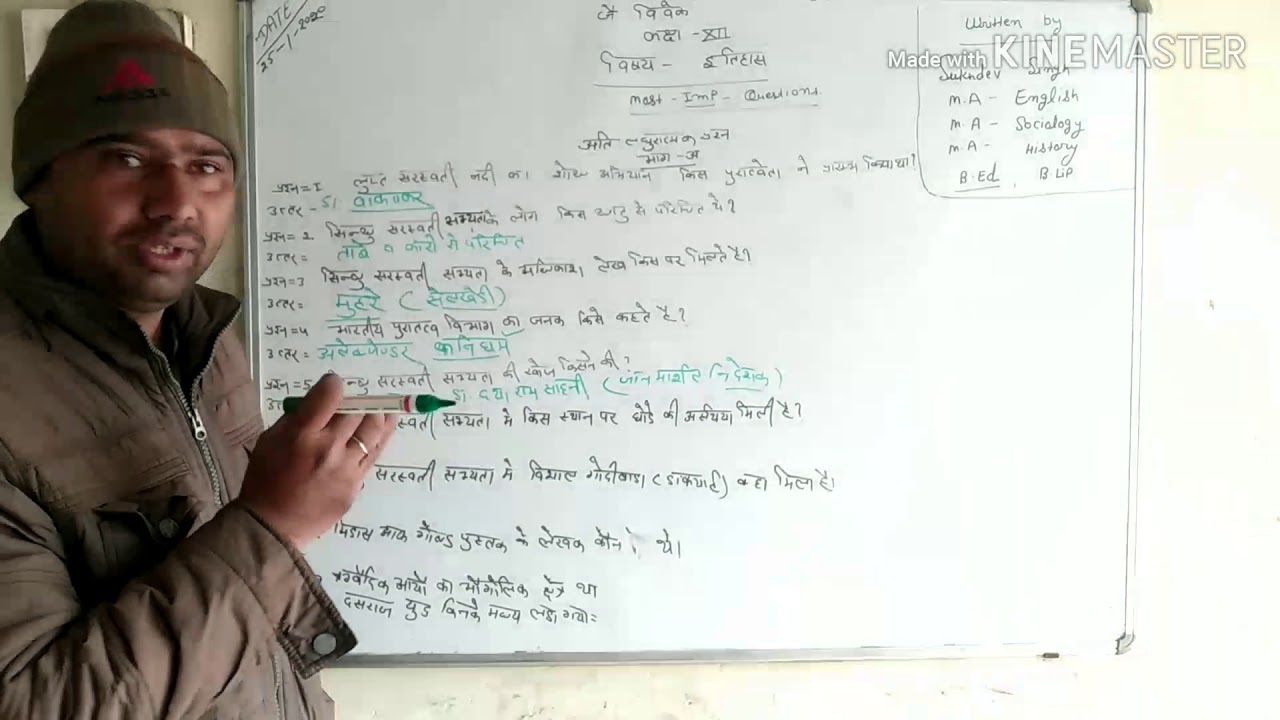 DATE
25-1-2020
जै विवेक
कक्षा - XII
विषय - इतिहास
most - Imp - Questions.
अति लघुरात्मक प्रश्न
भाग - अ
Written by
Made with KINEMASTER
Sukhdev Singh
M.A - English
M.A - Sociology
M.A - History
B.Ed, B.Lip
प्रश्न=1. लुप्त सरस्वती नदी का शोध अभियान किस पुरातत्वेता ने प्रारम्भ किया था?
उत्तर - डा. वाकणकर
प्रश्न=2. सिन्धु सरस्वती सभ्यता के लोग किन धातु से परिचित थे?
उत्तर= ताँबे व कांसे से परिचित
प्रश्न=3 सिन्धु सरस्वती सभ्यता के अधिकांश लेख किस पर मिलते है।
उत्तर= मुहरे (सेलखेडी)
प्रश्न=4 भारतीय पुरातत्व विभाग का जनक किसे कहते है?
उत्तर= अलेक्जेण्डर कनिघम
प्रश्न=5 सिन्धु सरस्वती सभ्यता की खोज किसने की?
डा. दया राम साहनी (जॉन मार्शल निदेशक)
सभ्यता मे किस स्थान पर घोडे की अस्थियां मिली है?
सरस्वती सभ्यता मे विशाल गोदीवाडा (डाकयार्ड) कहा मिला है।
मिडास माफ गोल्ड पुस्तक के लेखक कौन थे।
ऋग्वैदिक आर्यो का भौगोलिक क्षेत्र था
दसराज युद्ध किनके मध्य लडा गया=